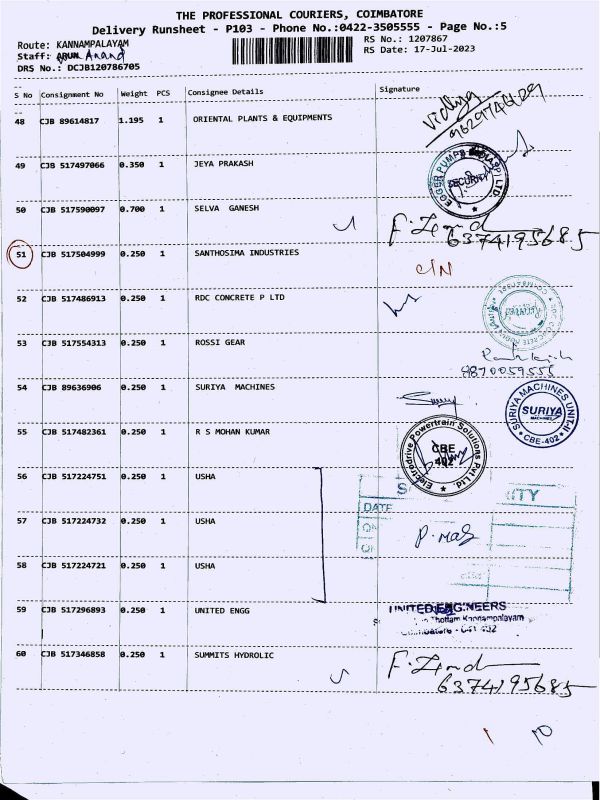 THE PROFESSIONAL COURIERS, COIMBATORE
Delivery Runsheet - P103 - Phone No.:0422-3505555 - Page No.:5
Route: KANNAMPALAYAM
RS No.: 1207867
Staff: ARUN Anand
RS Date: 17-Jul-2023
DRS No.: DCJB120786705
S No Consignment No Weight PCS Consignee Details Signature
48 CJB 89614817 1.195 1 ORIENTAL PLANTS & EQUIPMENTS
Vidhya
49 CJB 517497066 0.350 1 JEYA PRAKASH
EGGER PUMPS PVT LTD.
SECURITY
50 CJB 517590097 0.700 1 SELVA GANESH
6374195685
51 CJB 517504999 0.250 1 SANTHOSIMA INDUSTRIES
C/N
52 CJB 517486913 0.250 1 RDC CONCRETE P LTD
53 CJB 517554313 0.250 1 ROSSI GEAR
9870059555
54 CJB 89636906 0.250 1 SURIYA MACHINES
SURIYA MACHINES UNIT-II
SURIYA
MACHINES
CBE-402
55 CJB 517482361 0.250 1 R S MOHAN KUMAR
Electrodrive Powertrain Solutions Pvt Ltd.
CBE
402
56 CJB 517224751 0.250 1 USHA
DATE
57 CJB 517224732 0.250 1 USHA
58 CJB 517224721 0.250 1 USHA
59 CJB 517296893 0.250 1 UNITED ENGG
UNITED ENGINEERS
Thottam Kannampalayam
60 CJB 517346858 0.250 1 SUMMITS HYDROLIC
6374195685
10